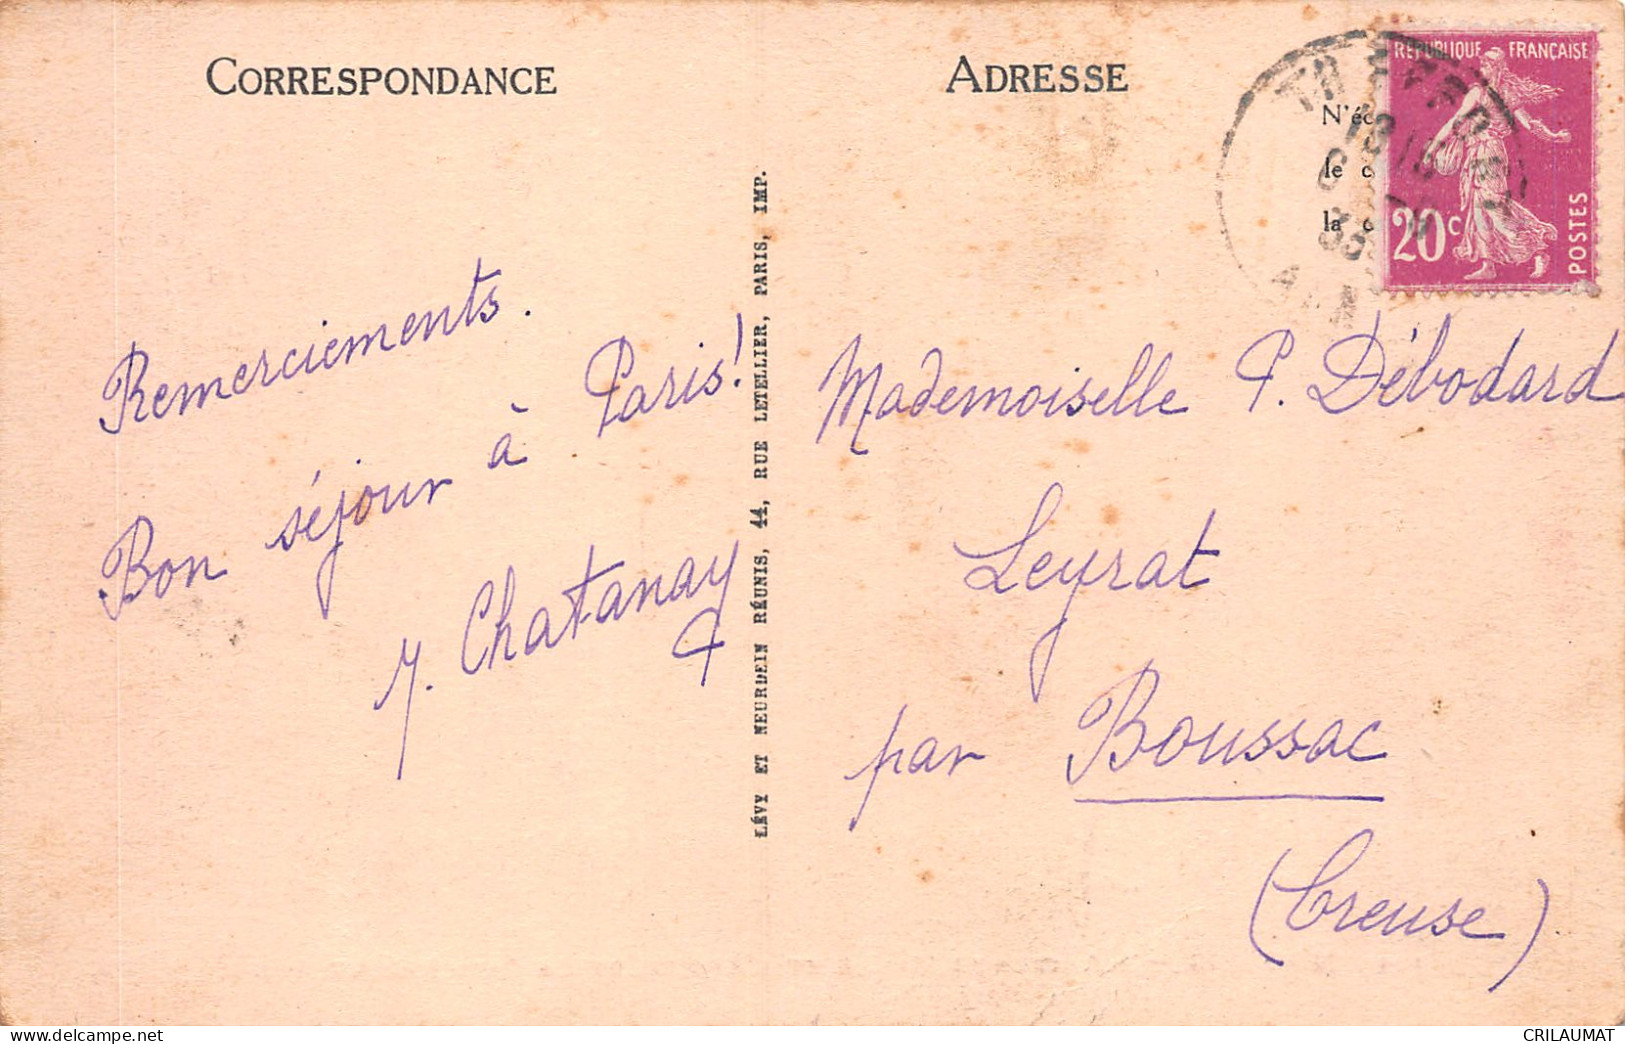 CORRESPONDANCE
ADRESSE
RÉPUBLIQUE FRANÇAISE
20c
POSTES
N'éc
le c
la c
Remerciements.
Bon séjour à Paris!
Y. Chatanay
LÉVY ET NEURDEIN RÉUNIS, 44, RUE LETELLIER, PARIS, IMP.
Mademoiselle P. Débodard
Leyrat
par Boussac
(Creuse)
CRILAUMAT